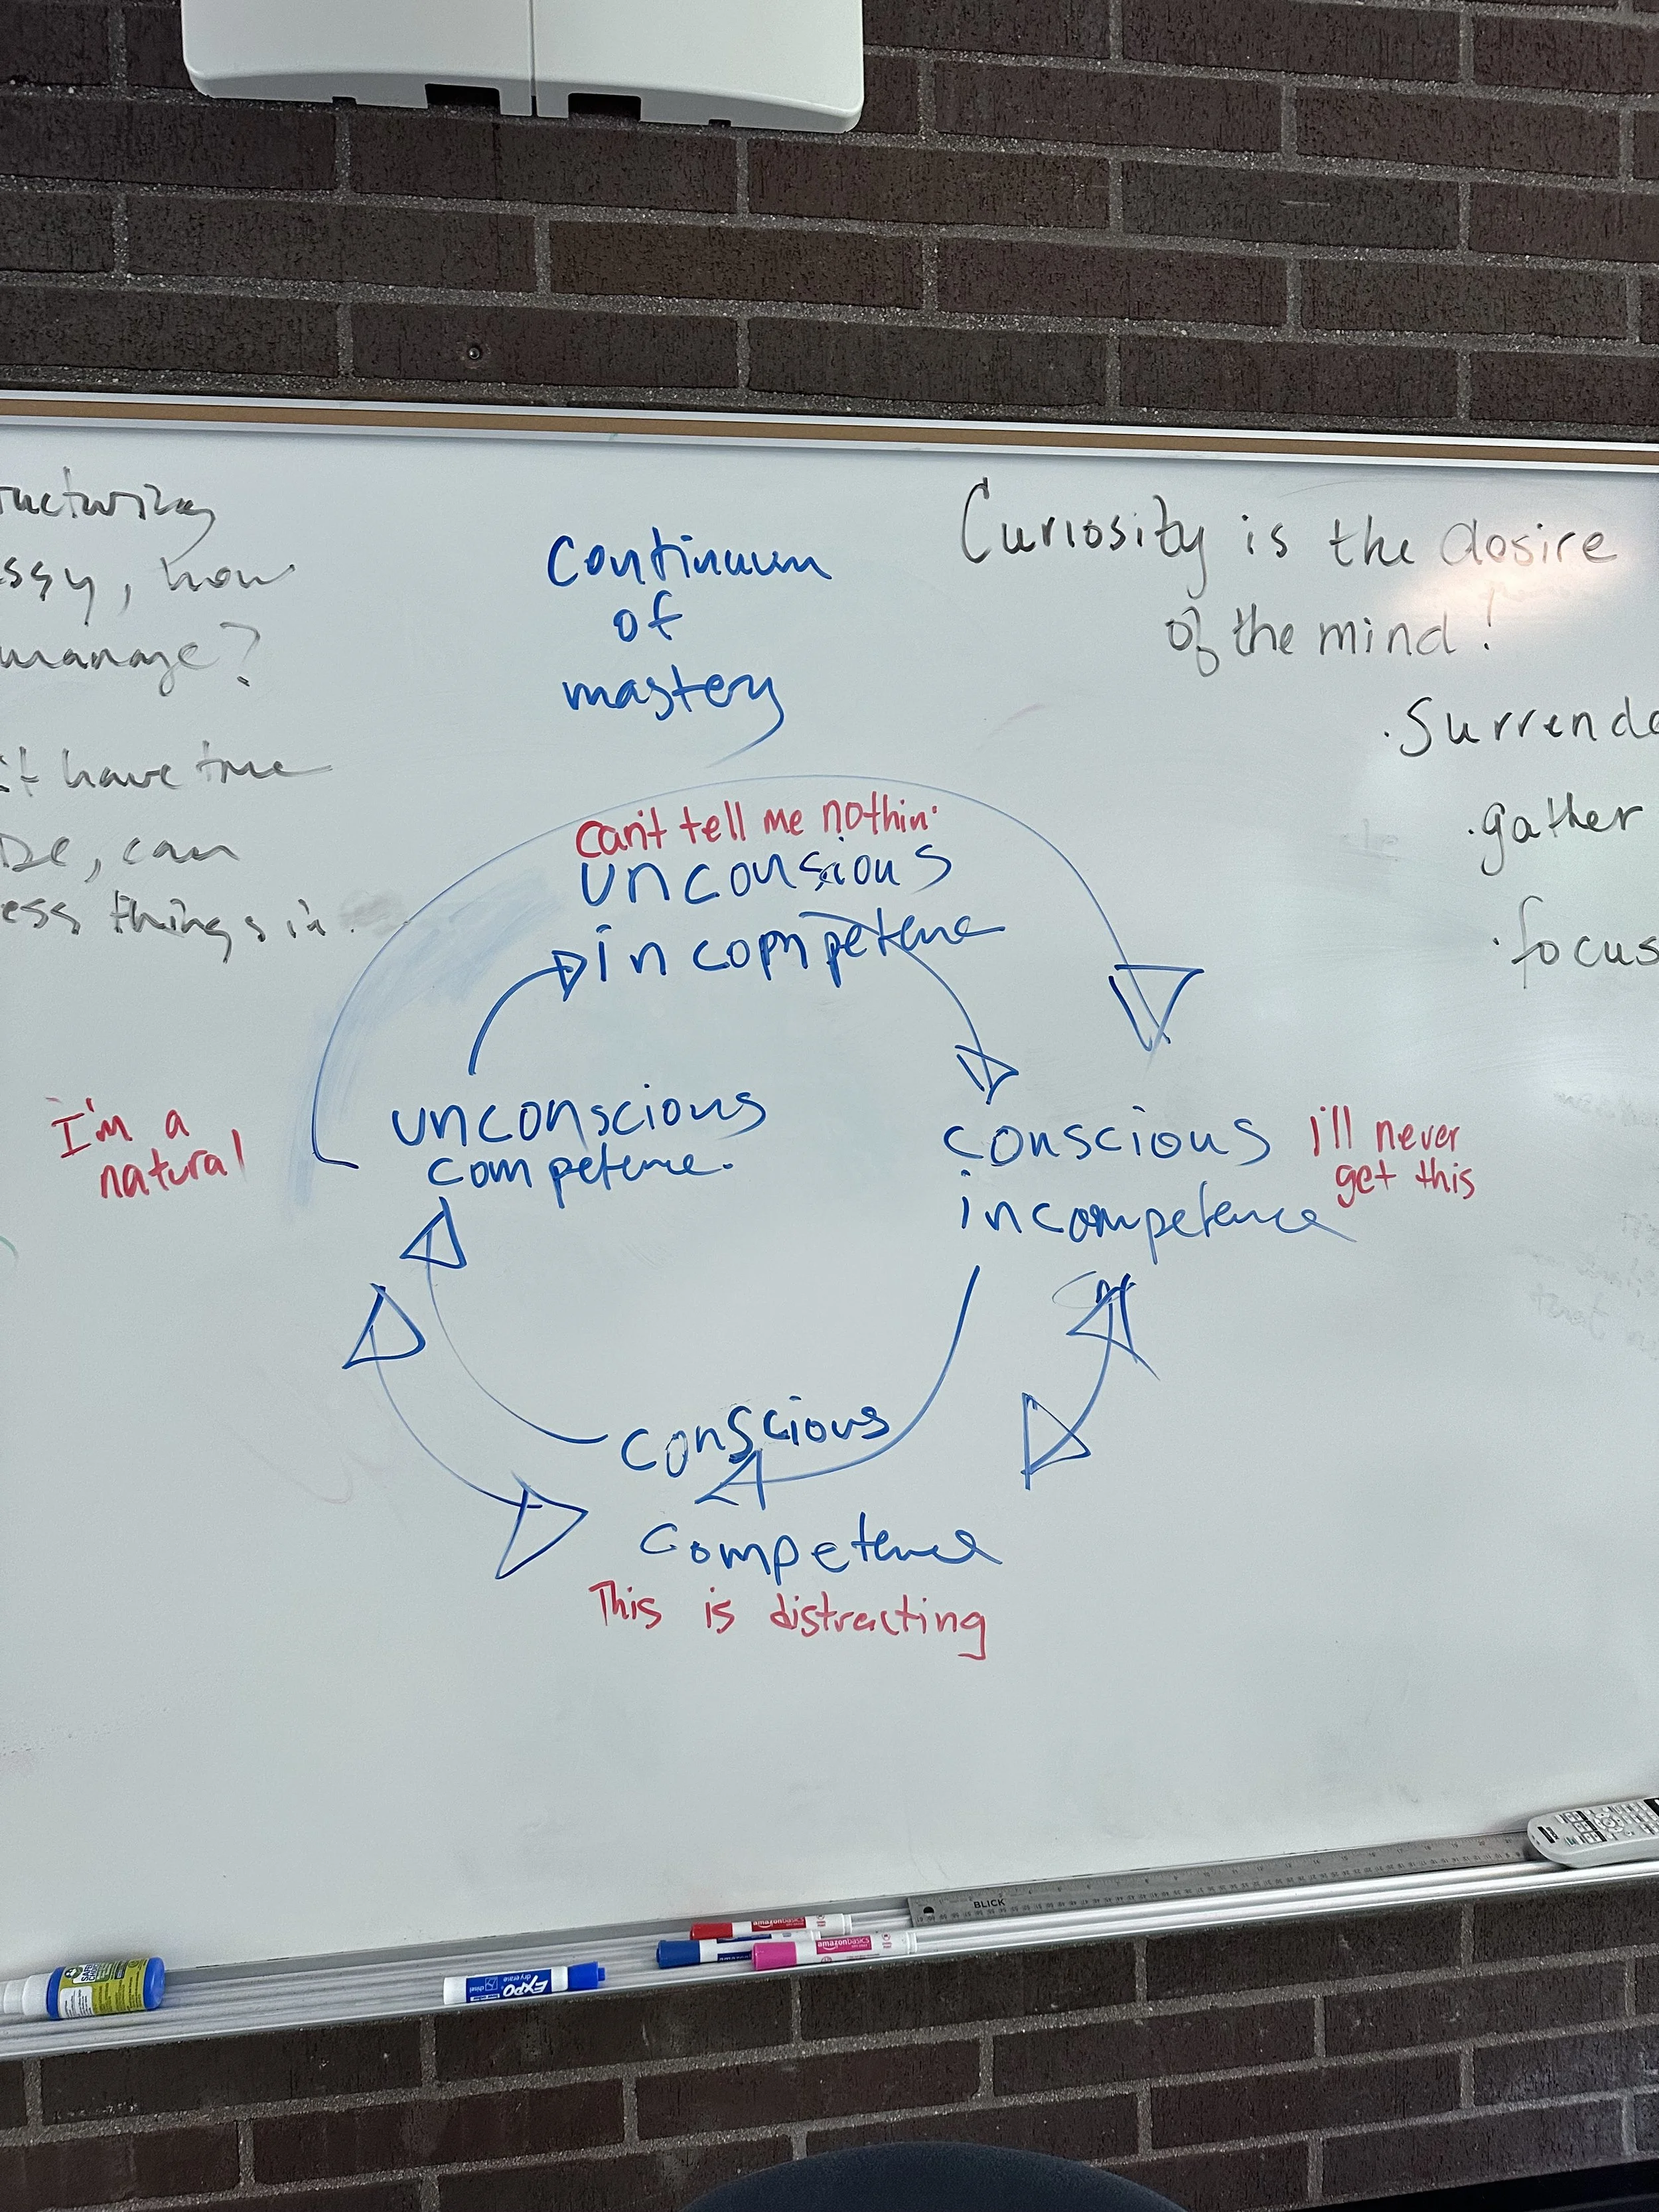 ssy, how
manage?
have true
can
ess things in.
Continuum
of
mastery
Curiosity is the desire
of the mind!
· Surrende
· gather
· focus
can't tell me nothin'
unconsious
incompetence
I'm a
natural
unconscious
competence.
conscious
incompetence
I'll never
get this
conscious
competence
This is distracting
BLICK
amazonbasics
amazonbasics
EXPO
dry erase